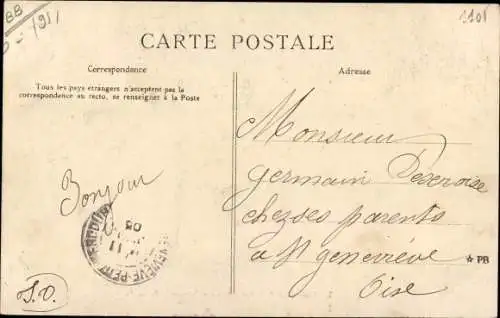 BB
1911
1101
CARTE POSTALE
Correspondance
Adresse
Tous les pays étrangers n'acceptent pas la
correspondance au recto, se renseigner à la Poste
Bonjour
S.D.
Monsieur
Germain
chez ses parents
a St geneviève
Oise
☆ PB